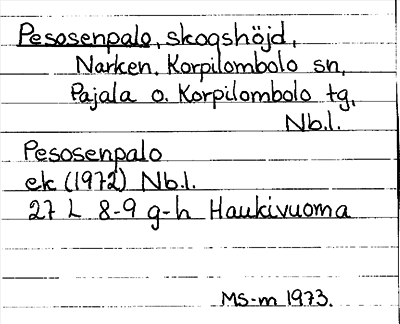 Pesosenpalo, skogshöjd,
Narken, Korpilombolo sn,
Pajala o. Korpilombolo tg,
Nb.l.
Pesosenpalo
ek (1972) Nb.l.
27 L 8-9 g-h Haukivuoma
MS-m 1973.